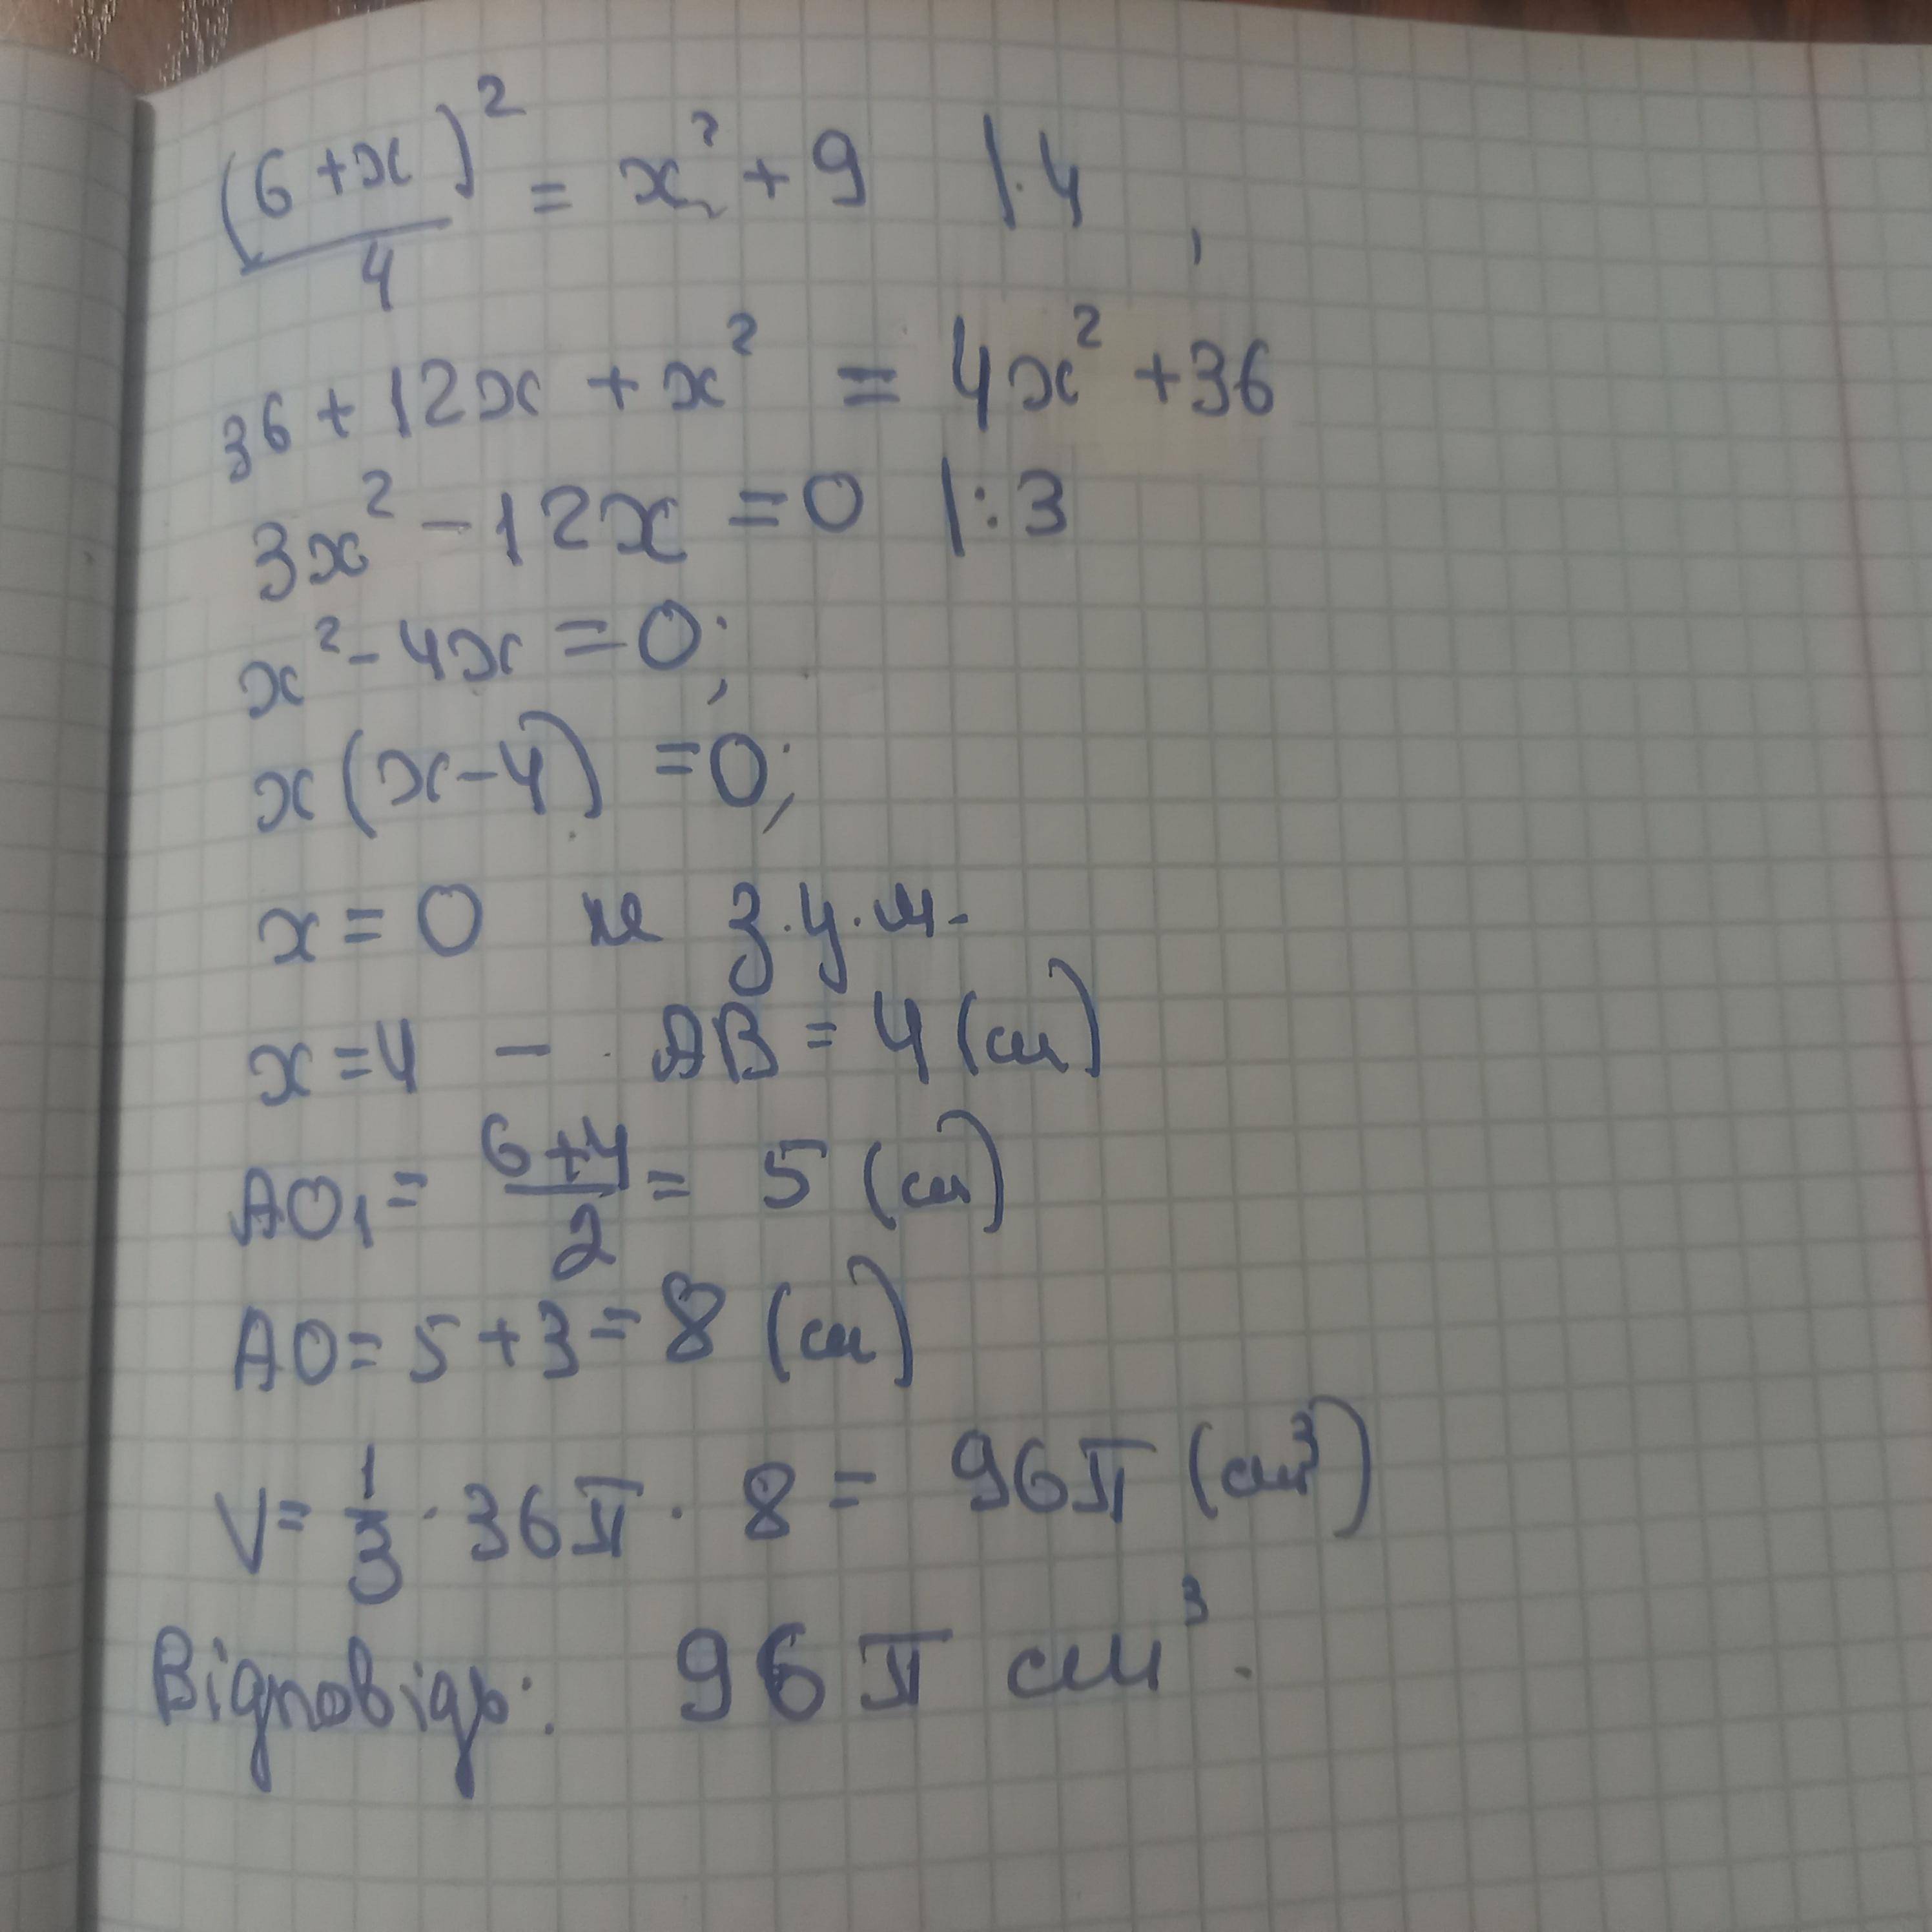 (6+x)²/4 = x²+9 |·4,
36+12x+x² = 4x²+36
3x²-12x=0 |:3
x²-4x=0;
x(x-4)=0;
x=0 не з.у.м.
x=4 - AB=4(см)
AO₁=(6+4)/2=5(см)
AO=5+3=8(см)
V=1/3·36π·8=96π(см³)
Відповідь: 96π см³.